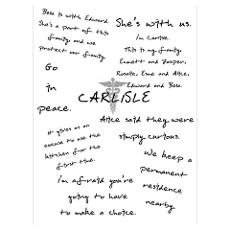 Bella is with Edward.
She's a part of this
family and we
protect our family
She's with us.
I'm Carlisle.
This is my family
Emmett and Jasper,
Rosalie, Esme and Alice,
Edward and Bella.
Go
in
peace.
CARLISLE
Alice said they were
simply curious.
It gives us an
excuse to use the
kitchen for the
first time.
We keep a
permanent
residence
nearby.
I'm afraid you're
going to have
to make a choice.